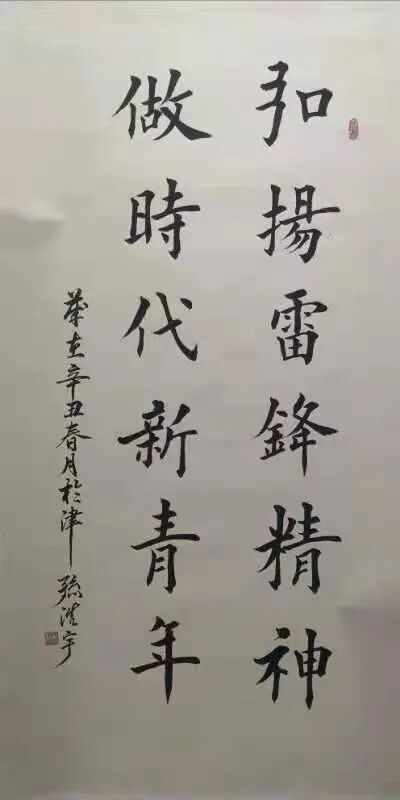 弘揚雷鋒精神
做時代新青年
歲在辛丑春月於津 孫浩宇